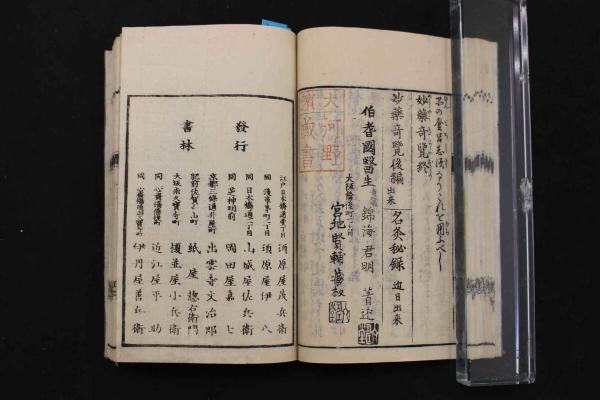 妙藥奇覽終
妙藥奇覽後編 出来
名灸秘録 近日出来
伯耆國醫生 錦海 君明 著述
宮地賢輔藏板
大河野
蔵書
發行
書林
江戸日本橋通壱丁目 須原屋茂兵衛
同 浅草茅町二丁目 須原屋伊八
同 日本橋通二丁目 山城屋佐兵衛
同 芝神明前 岡田屋嘉七
京都三條通升屋町 出雲寺文治郎
肥前佐賀 山町 紙屋 惣右衛門
大坂南久寳寺町 榎並屋小兵衛
同 心斎橋 近江屋平助
同 伊丹屋善兵衛